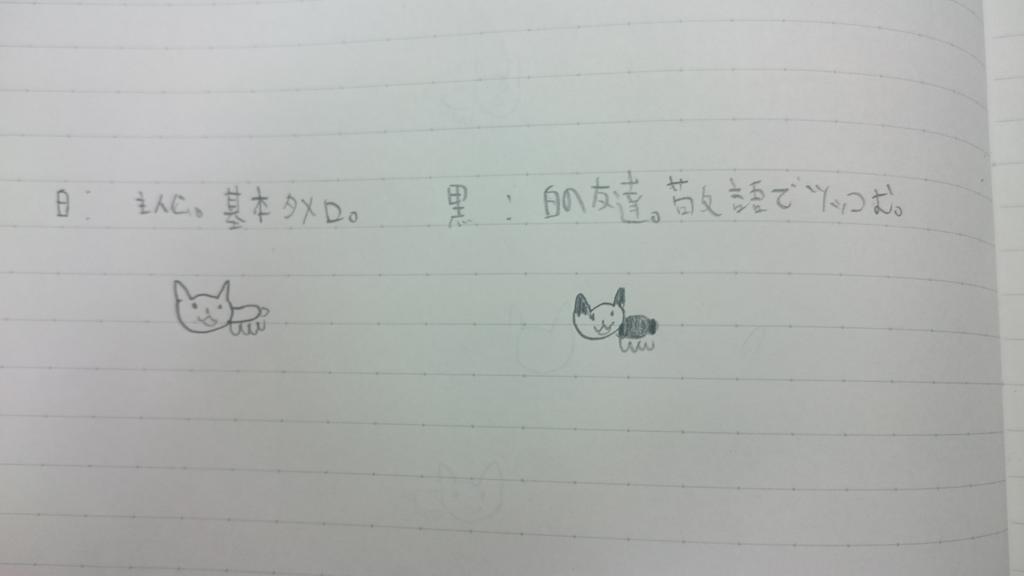 白： 主人公。基本タメ口。 黒： 白の友達。敬語でツッコむ。